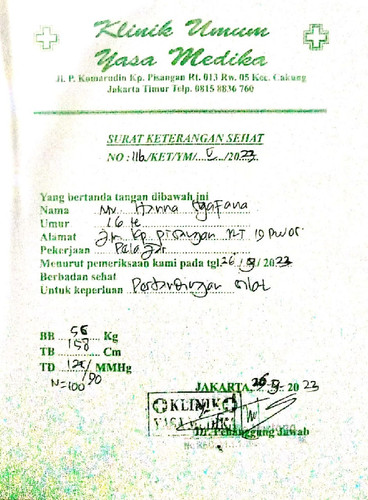 Klinik Umum
Yasa Medika
Jl. P. Komarudin Kp. Pisangan Rt. 013 Rw. 05 Kec. Cakung
Jakarta Timur Telp. 0815 8836 760
SURAT KETERANGAN SEHAT
NO : 116/KET/YM/ V /2023
Yang bertanda tangan dibawah ini
Nama Nn. Hanna
Umur 16 th
Alamat Jln Kp pisangan RT 13 RW 05
Pekerjaan Pelajar
Menurut pemeriksaan kami pada tgl. 26 / 5 / 2023
Berbadan sehat
Untuk keperluan Pertandingan silat
BB 56 Kg
TB 158 Cm
TD 120/ MMHg
N=100 90
JAKARTA, 26 - 5 - 2023
KLINIK
YASA MEDIKA
Dr. Penanggung Jawab